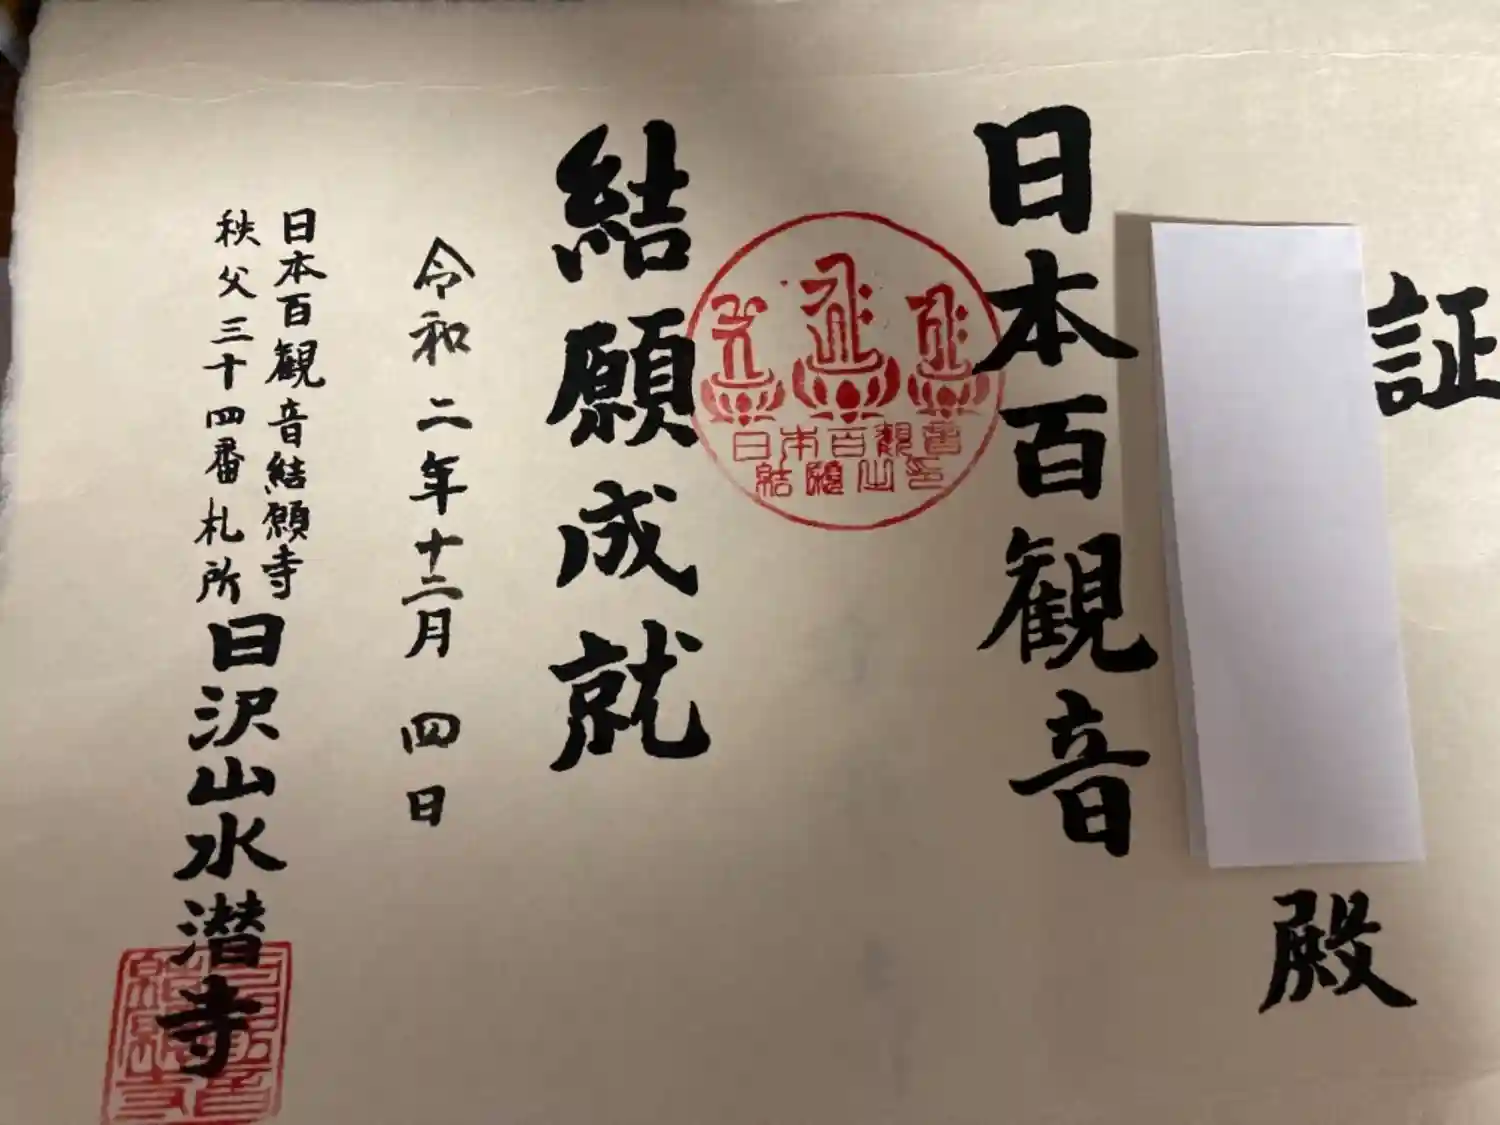 証
殿
日本百観音
日本百観音
結願山印
結願成就
令和二年十二月四日
日本百観音結願寺
秩父三十四番札所
日沢山水潜寺